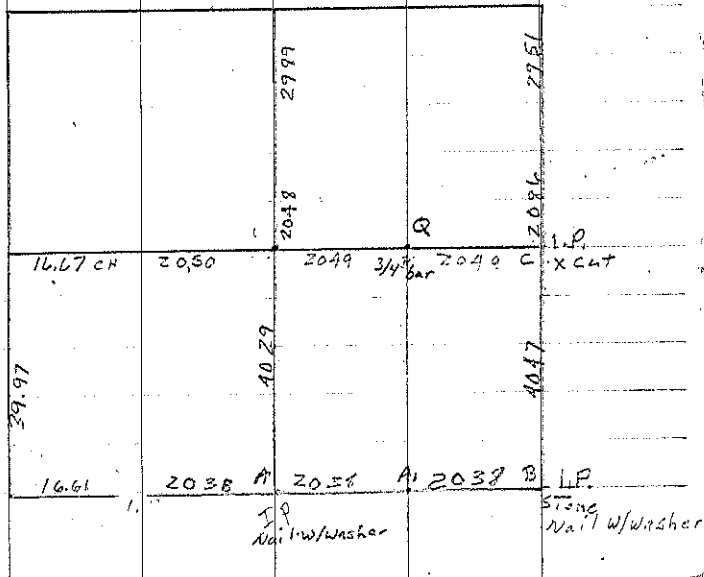 2999
2951
2048
2086
Q
I.P.
16.67 CH 20,50 2049 3/4" bar 2049 C X Cut
4029
4047
39.97
16.61 2038 A 2038 A1 2038 B I.P.
I P
Stone
Nail w/washer
Nail w/washer